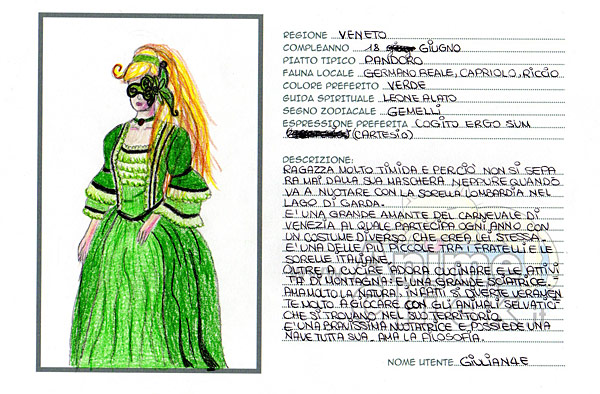 REGIONE VENETO
COMPLEANNO 18 GIUGNO
PIATTO TIPICO PANDORO
FAUNA LOCALE GERMANO REALE, CAPRIOLO, RICCIO
COLORE PREFERITO VERDE
GUIDA SPIRITUALE LEONE ALATO
SEGNO ZODIACALE GEMELLI
ESPRESSIONE PREFERITA COGITO ERGO SUM
(CARTESIO)
DESCRIZIONE:
RAGAZZA MOLTO TIMIDA E PERCIÒ NON SI SEPA
RA MAI DALLA SUA MASCHERA NEPPURE QUANDO
VA A NUOTARE CON LA SORELLA LOMBARDIA NEL
LAGO DI GARDA.
E' UNA GRANDE AMANTE DEL CARNEVALE DI
VENEZIA AL QUALE PARTECIPA OGNI ANNO CON
UN COSTUME DIVERSO CHE CREA LEI STESSA.
E' UNA DELLE PIÙ PICCOLE TRA I FRATELLI E LE
SORELLE ITALIANE.
OLTRE A CUCIRE ADORA CUCINARE E LE ATTIVI
TÀ DI MONTAGNA: E' UNA GRANDE SCIATRICE.
AMA MOLTO LA NATURA, INFATTI SI DIVERTE VERAMEN
TE MOLTO A GIOCARE CON GLI ANIMALI SELVATICI
CHE SI TROVANO NEL SUO TERRITORIO.
E' UNA BRAVISSIMA NUOTATRICE E POSSIEDE UNA
NAVE TUTTA SUA. AMA LA FILOSOFIA.
NOME UTENTE GIULIAN4E